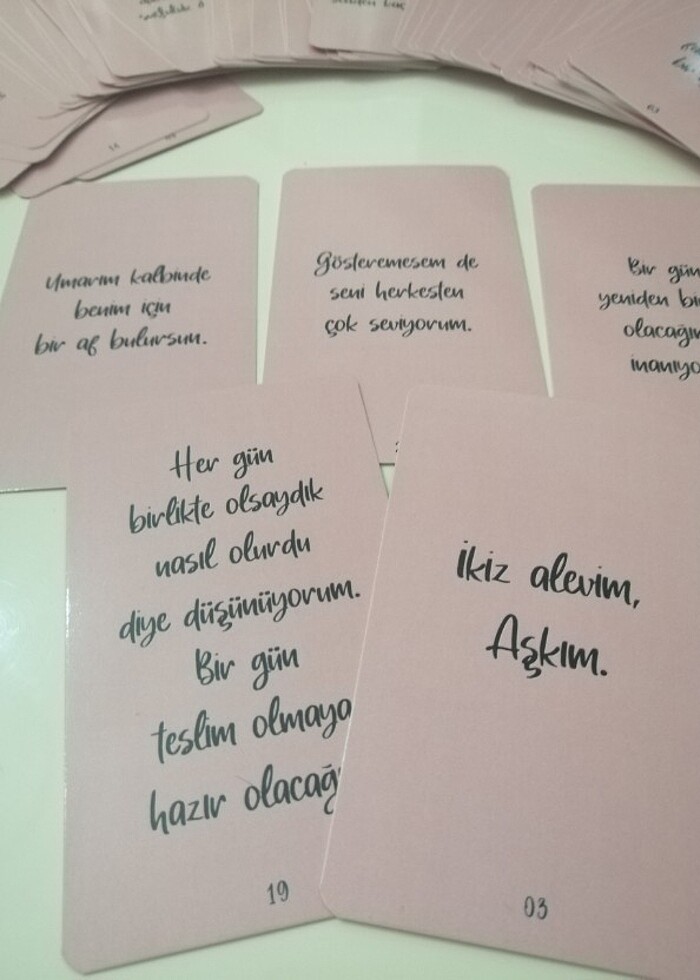 Umarım kalbinde
benim için
bir af bulursun.
Gösteremesem de
seni herkesten
çok seviyorum.
Bir gün
yeniden
Her gün
birlikte olsaydık
nasıl olurdu
diye düşünüyorum.
Bir gün
teslim olmaya
hazır
19
İkiz alevim,
Aşkım.
03